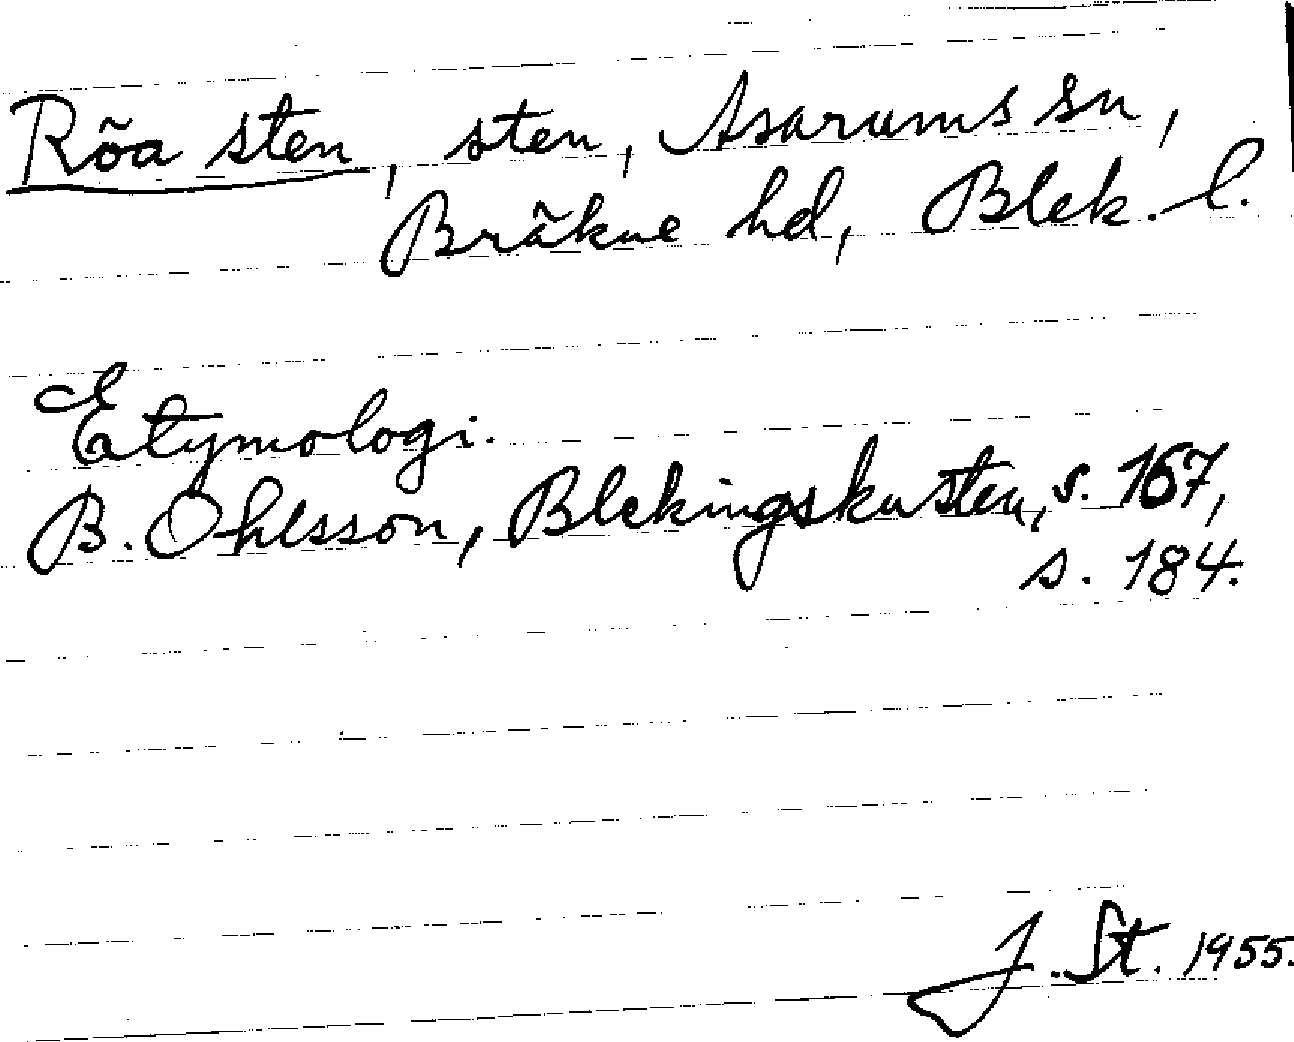 Röa sten, sten, Asarums sn,
Bräkne hd, Blek. l.
Etymologi.
B. Ohlsson, Blekingskusten, s. 167,
s. 184.
J. St. 1955.